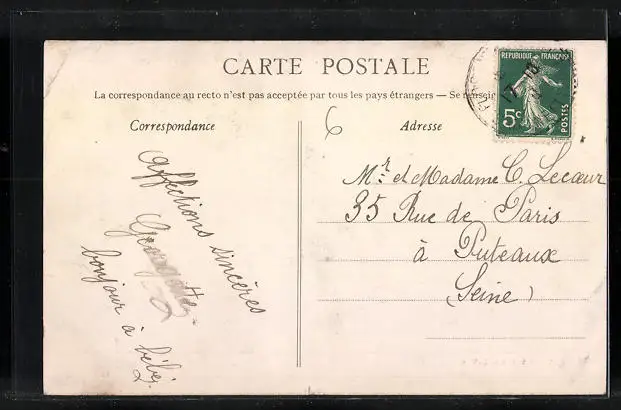 CARTE POSTALE
La correspondance au recto n'est pas acceptée par tous les pays étrangers — Se renseig
Correspondance
Adresse
REPUBLIQUE FRANÇAISE
5c
POSTES
17-10
6
Affections sincères
Georgette
bonjour à bébé
Mr et Madame C. Lecœur
35 Rue de Paris
à Puteaux
(Seine)